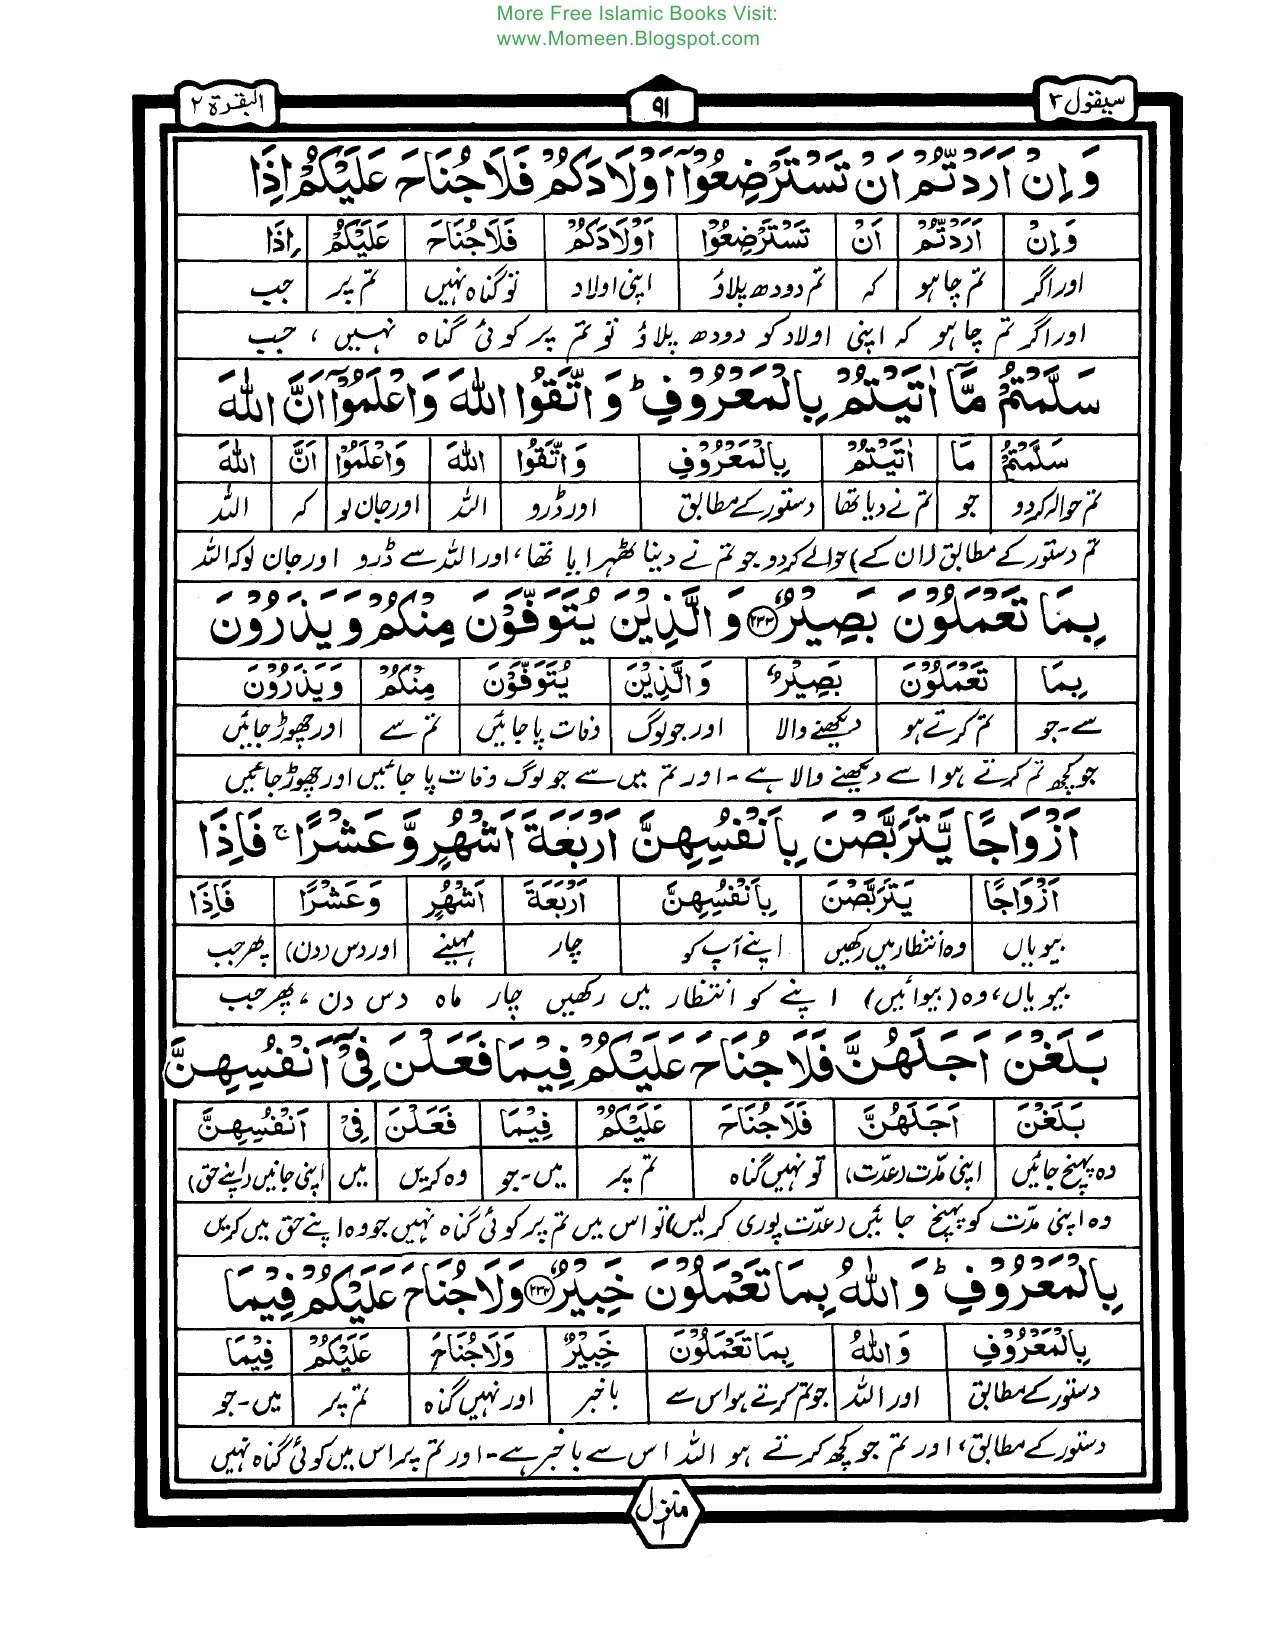 More Free Islamic Books Visit:
www.Momeen.Blogspot.com
سیقول ۲ ۹۱ البقرة ۲
وَاِنْ اَرَدْتُّمْ اَنْ تَسْتَرْضِعُوْٓا اَوْلَادَكُمْ فَلَا جُنَاحَ عَلَيْكُمْ اِذَا
وَاِنْ اَرَدْتُّمْ اَنْ تَسْتَرْضِعُوْٓا اَوْلَادَكُمْ فَلَا جُنَاحَ عَلَيْكُمْ اِذَا
اور اگر تم چاہو کہ تم دودھ پلاؤ اپنی اولاد تو گناہ نہیں تم پر جب
اور اگر تم چاہو کہ اپنی اولاد کو دودھ پلاؤ تو تم پر کوئی گناہ نہیں ، جب
سَلَّمْتُمْ مَّآ اٰتَيْتُمْ بِالْمَعْرُوْفِ ؕ وَاتَّقُوا اللّٰهَ وَاعْلَمُوْٓا اَنَّ اللّٰهَ
سَلَّمْتُمْ مَا اٰتَيْتُمْ بِالْمَعْرُوْفِ وَاتَّقُوا اللّٰهَ وَاعْلَمُوْٓا اَنَّ اللّٰهَ
تم حوالہ کردو جو تم نے دیا تھا دستور کے مطابق اور ڈرو اللہ اور جان لو کہ اللہ
تم دستور کے مطابق (ان کے) حوالے کردو جو تم نے دینا ٹھہرایا تھا، اور اللہ سے ڈرو اور جان لو کہ اللہ
بِمَا تَعْمَلُوْنَ بَصِيْرٌ ﴿۲۳۳﴾ وَالَّذِيْنَ يُتَوَفَّوْنَ مِنْكُمْ وَيَذَرُوْنَ
بِمَا تَعْمَلُوْنَ بَصِيْرٌ وَالَّذِيْنَ يُتَوَفَّوْنَ مِنْكُمْ وَيَذَرُوْنَ
سے-جو تم کرتے ہو دیکھنے والا اور جو لوگ وفات پاجائیں تم سے اور چھوڑ جائیں
جو کچھ تم کرتے ہو اسے دیکھنے والا ہے - اور تم میں سے جو لوگ وفات پا جائیں اور چھوڑ جائیں
اَزْوَاجًا يَّتَرَبَّصْنَ بِاَنْفُسِهِنَّ اَرْبَعَةَ اَشْهُرٍ وَّعَشْرًا ۚ فَاِذَا
اَزْوَاجًا يَتَرَبَّصْنَ بِاَنْفُسِهِنَّ اَرْبَعَةَ اَشْهُرٍ وَعَشْرًا فَاِذَا
بیویاں وہ انتظار میں رکھیں اپنے آپ کو چار مہینے اور دس (دن) پھر جب
بیویاں، وہ (بیوائیں) اپنے کو انتظار میں رکھیں چار ماہ دس دن ، پھر جب
بَلَغْنَ اَجَلَهُنَّ فَلَا جُنَاحَ عَلَيْكُمْ فِيْمَا فَعَلْنَ فِيْٓ اَنْفُسِهِنَّ
بَلَغْنَ اَجَلَهُنَّ فَلَا جُنَاحَ عَلَيْكُمْ فِيْمَا فَعَلْنَ فِيْٓ اَنْفُسِهِنَّ
وہ پہنچ جائیں اپنی مدّت (عدّت) تو نہیں گناہ تم پر میں-جو وہ کریں میں اپنی جانیں (اپنے حق)
وہ اپنی مدّت کو پہنچ جائیں (عدّت پوری کر لیں) تو اس میں تم پر کوئی گناہ نہیں جو وہ اپنے حق میں کریں
بِالْمَعْرُوْفِ ؕ وَاللّٰهُ بِمَا تَعْمَلُوْنَ خَبِيْرٌ ﴿۲۳۴﴾ وَلَا جُنَاحَ عَلَيْكُمْ فِيْمَا
بِالْمَعْرُوْفِ وَاللّٰهُ بِمَا تَعْمَلُوْنَ خَبِيْرٌ وَلَا جُنَاحَ عَلَيْكُمْ فِيْمَا
دستور کے مطابق اور اللہ جو تم کرتے ہو اس سے باخبر اور نہیں گناہ تم پر میں-جو
دستور کے مطابق، اور تم جو کچھ کرتے ہو اللہ اس سے باخبر ہے - اور تم پر اس میں کوئی گناہ نہیں
منزل ۱